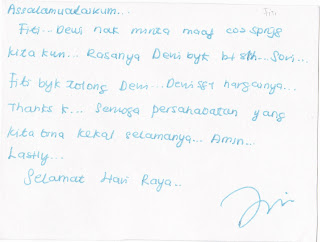 Assalamualaikum...
Fiti... Dewi nak minta maaf cos spnjg
kita kwn... Rasanya Dewi byk bt slh... Sori...
Fits byk tolong Dewi... Dewi sgt hargainya...
Thanks k... Semoga persahabatan yang
kita bina kekal selamanya... Amin...
Lastly...
Selamat Hari Raya..